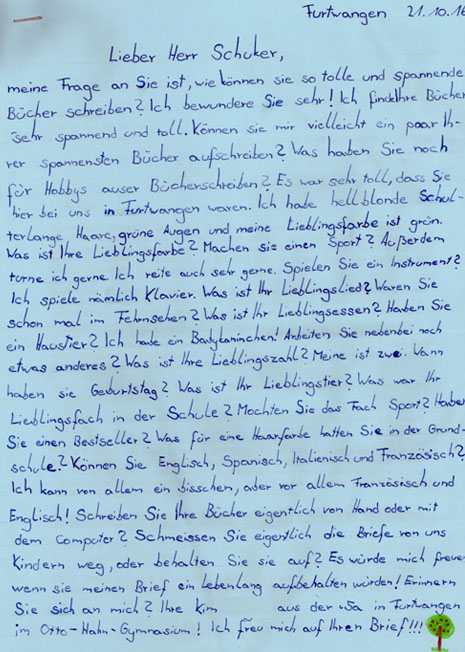 Furtwangen 21.10.16
Lieber Herr Schuker,
meine Frage an Sie ist, wie können sie so tolle und spannende
Bücher schreiben? Ich bewundere Sie sehr! Ich finde Ihre Bücher
sehr spannend und toll. Können sie mir vielleicht ein paar Ih-
rer spannensten Bücher aufschreiben? Was haben Sie noch
für Hobbys auser Bücherschreiben? Es war sehr toll, dass Sie
hier bei uns in Furtwangen waren. Ich habe hellblonde Schul-
terlange Haare, grüne Augen und meine Lieblingsfarbe ist grün.
Was ist Ihre Lieblingsfarbe? Machen sie einen Sport? Außerdem
turne ich gerne. Ich reite auch sehr gerne. Spielen Sie ein Instrument?
Ich spiele nämlich Klavier. Was ist Ihr Lieblingslied? Waren Sie
schon mal im Fehrnsehen? Was ist Ihr Lieblingsessen? Haben Sie
ein Haustier? Ich habe ein Babykaninchen! Arbeiten Sie nebenbei noch
etwas anderes? Was ist Ihre Lieblingszahl? Meine ist zwei. Wann
haben sie Geburtstag? Was ist Ihr Lieblingstier? Was war Ihr
Lieblingsfach in der Schule? Mochten Sie das Fach Sport? Haben
Sie einen Bestseller? Was für eine Haarfarbe hatten Sie in der Grund-
schule? Können Sie Englisch, Spanisch, Italienisch und Französisch?
Ich kann von allem ein bisschen, aber vor allem Französisch und
Englisch! Schreiben Sie Ihre Bücher eigentlich von Hand oder mit
dem Computer? Schmeissen Sie eigentlich die Briefe von uns
Kindern weg, oder behalten Sie sie auf? Es würde mich freuen
wenn sie meinen Brief ein Lebenlang aufbehalten würden! Erinnern
Sie sich an mich? Ihre Kim aus der 5a in Furtwangen
im Otto-Hahn-Gymnasium! Ich freu mich auf Ihren Brief!!!